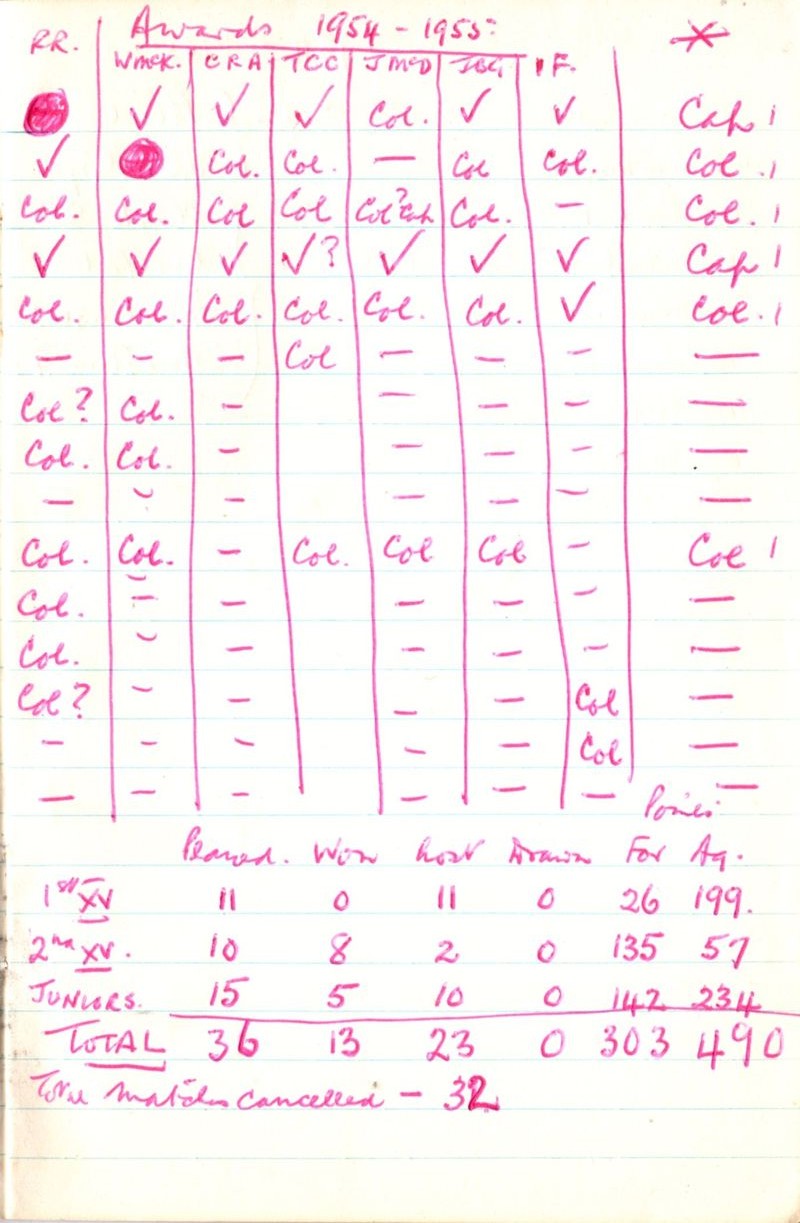 Awards 1954 - 1955:
RR. WMcK. CRA TCC JMcD JBG I F. *
● ✓ ✓ ✓ Col. ✓ ✓ Cap 1
✓ ● Col. Col. — Col Col. Col. 1
Col. Col. Col Col Col? Cap Col. — Col. 1
✓ ✓ ✓ ✓? ✓ ✓ ✓ Cap 1
Col. Col. Col. Col. Col. Col. ✓ Col. 1
— — — Col — — — —
Col? Col. — — — — —
Col. Col. — — — — —
— — — — — — —
Col. Col. — Col. Col Col — Col 1
Col. — — — — — —
Col. — — — — — —
Col? — — — — Col —
— — — — — Col —
— — — — — — —
Points
Played. Won Lost Drawn For Ag.
1st XV 11 0 11 0 26 199.
2nd XV. 10 8 2 0 135 57
JUNIORS. 15 5 10 0 142 234
TOTAL 36 13 23 0 303 490
Total matches cancelled — 32